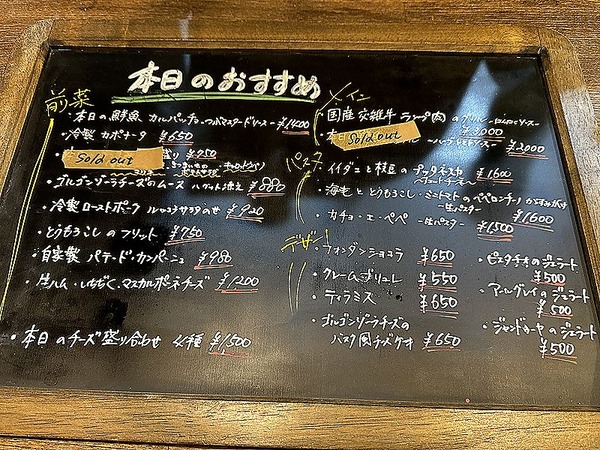 本日のおすすめ
前菜
・本日の鮮魚 カルパッチョ つぶマスタードソース ¥1400
・冷製 カポナータ ¥650
Sold out
盛り ¥750
・ゴルゴンゾーラチーズのムース バゲット添え ¥880
・冷製ローストポーク ルッコラサラダのせ ¥920
・とうもろこしのフリット ¥750
・自家製 パテ・ド・カンパーニュ ¥980
・生ハム・いちじく、マスカルポーネチーズ ¥1200
・本日のチーズ盛り合わせ 4種 ¥1500
メイン
・国産交雑牛 ランプ肉のグリル ¥3000
Sold out
¥2000
パスタ
・イイダコと枝豆のプッタネスカ ¥1600
・海老ととうもろこし・ミニトマトのペペロンチーノ からすみがけ
～生パスタ～ ¥1600
・カチョ・エ・ペペ ～生パスタ～ ¥1500
デザート
・フォンダンショコラ ¥650
・クレームブリュレ ¥550
・ティラミス ¥650
・ゴルゴンゾーラチーズの
バスク風チーズケーキ ¥650
・ピスタチオのジェラート
¥500
・アールグレイのジェラート
¥500
・ジャンドゥーヤのジェラート
¥500